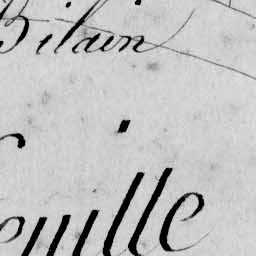 Bilain
euille